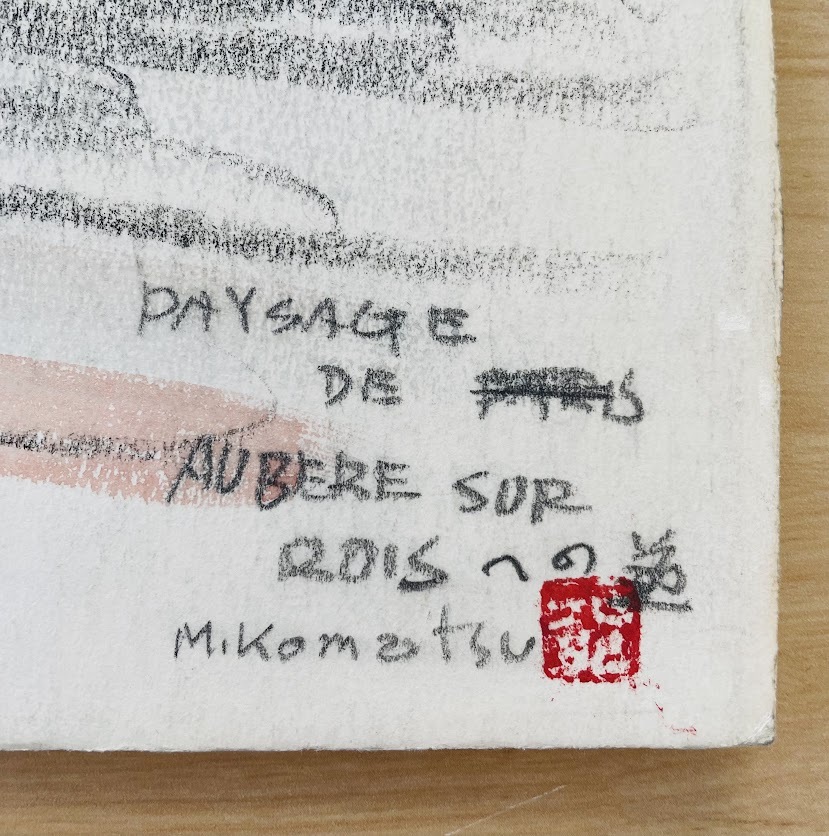 PAYSAGE
DE
AUBERE SUR
ROIS への道
M.Komatsu